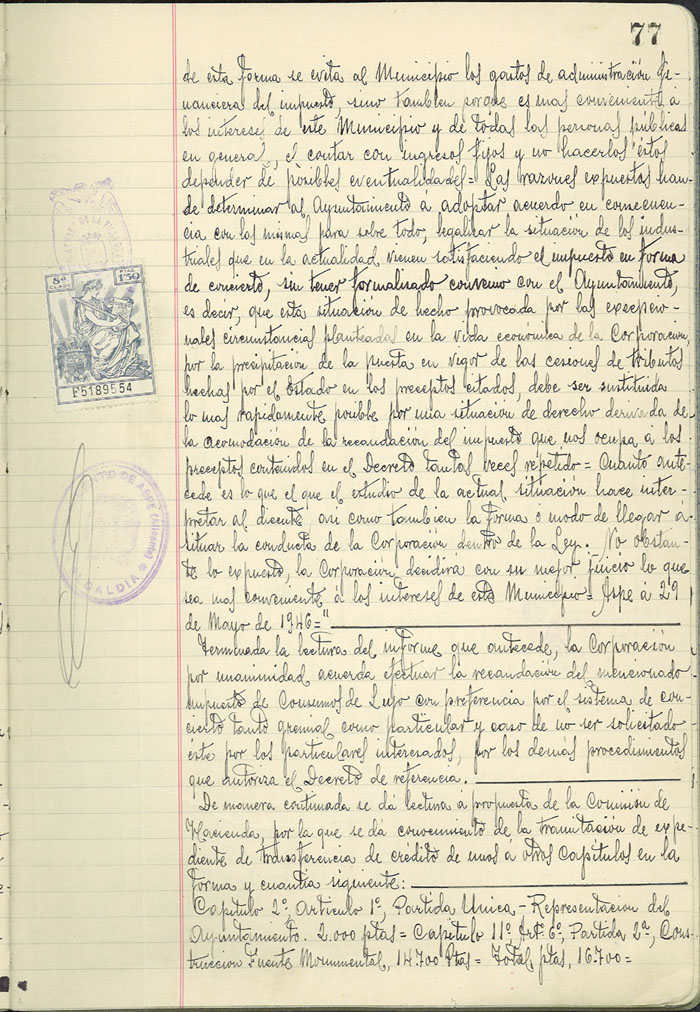 77
de esta forma se evita al Municipio los gastos de administración fi-
nanciera del impuesto, sino tambien porque es mas conveniente á
los intereses de este Municipio y de todas las personas públicas
en general, el contar con ingresos fijos y no hacerlos éstos
depender de posibles eventualidades= Las razones expuestas han
de determinar al Ayuntamiento á adoptar acuerdo en consecuen-
cia con las mismas para sobre todo, legalizar la situación de los indus-
triales que en la actualidad vienen satisfaciendo el impuesto en forma
de concierto, sin tener formalizado convenio con el Ayuntamiento,
es decir, que esta situación de hecho provocada por las excepcio-
nales circunstancias planteadas en la vida económica de la Corporación,
por la precipitación de la puesta en vigor de las cesiones de tributos
hechas por el Estado en los preceptos citados, debe ser sustituida
lo mas rapidamente posible por una situación de derecho derivada de
la acomodación de la recaudación del impuesto que nos ocupa, á los
preceptos contenidos en el Decreto tantas veces repetido= Cuanto ante-
cede es lo que el que el estudio de la actual situación hace inter-
pretar al dicente así como tambien la forma ó modo de llegar á
situar la conducta de la Corporación dentro de la Ley. No obstan-
te lo expuesto, la Corporación decidira con su mejor juicio lo que
sea mas conveniente á los intereses de este Municipio= Aspe á 29
de Mayo de 1946="
Terminada la lectura del informe que antecede, la Corporación
por unanimidad acuerda efectuar la recaudación del mencionado
impuesto de Consumos de Lujo con preferencia por el sistema de con-
cierto tanto gremial como particular y caso de no ser solicitado
éste por los particulares interesados, por los demás procedimientos
que autoriza el Decreto de referencia.
De manera continuada se dá lectura á propuesta de la Comisión de
Hacienda, por la que se dá conocimiento de la tramitación de expe-
diente de transferencia de crédito de unos á otros Capítulos en la
forma y cuantia siguiente:
Capitulo 2º, Articulo 1º, Partida Unica - Representacion del
Ayuntamiento. 2.000 ptas= Capitulo 11º Artº 6º, Partida 2ª, Cons-
truccion Fuente Monumental, 14.700 Ptas= Total ptas, 16.700=
8ª
CLASE
1'50
F5189554
DE ASPE (Alicante)
ALCALDÍA